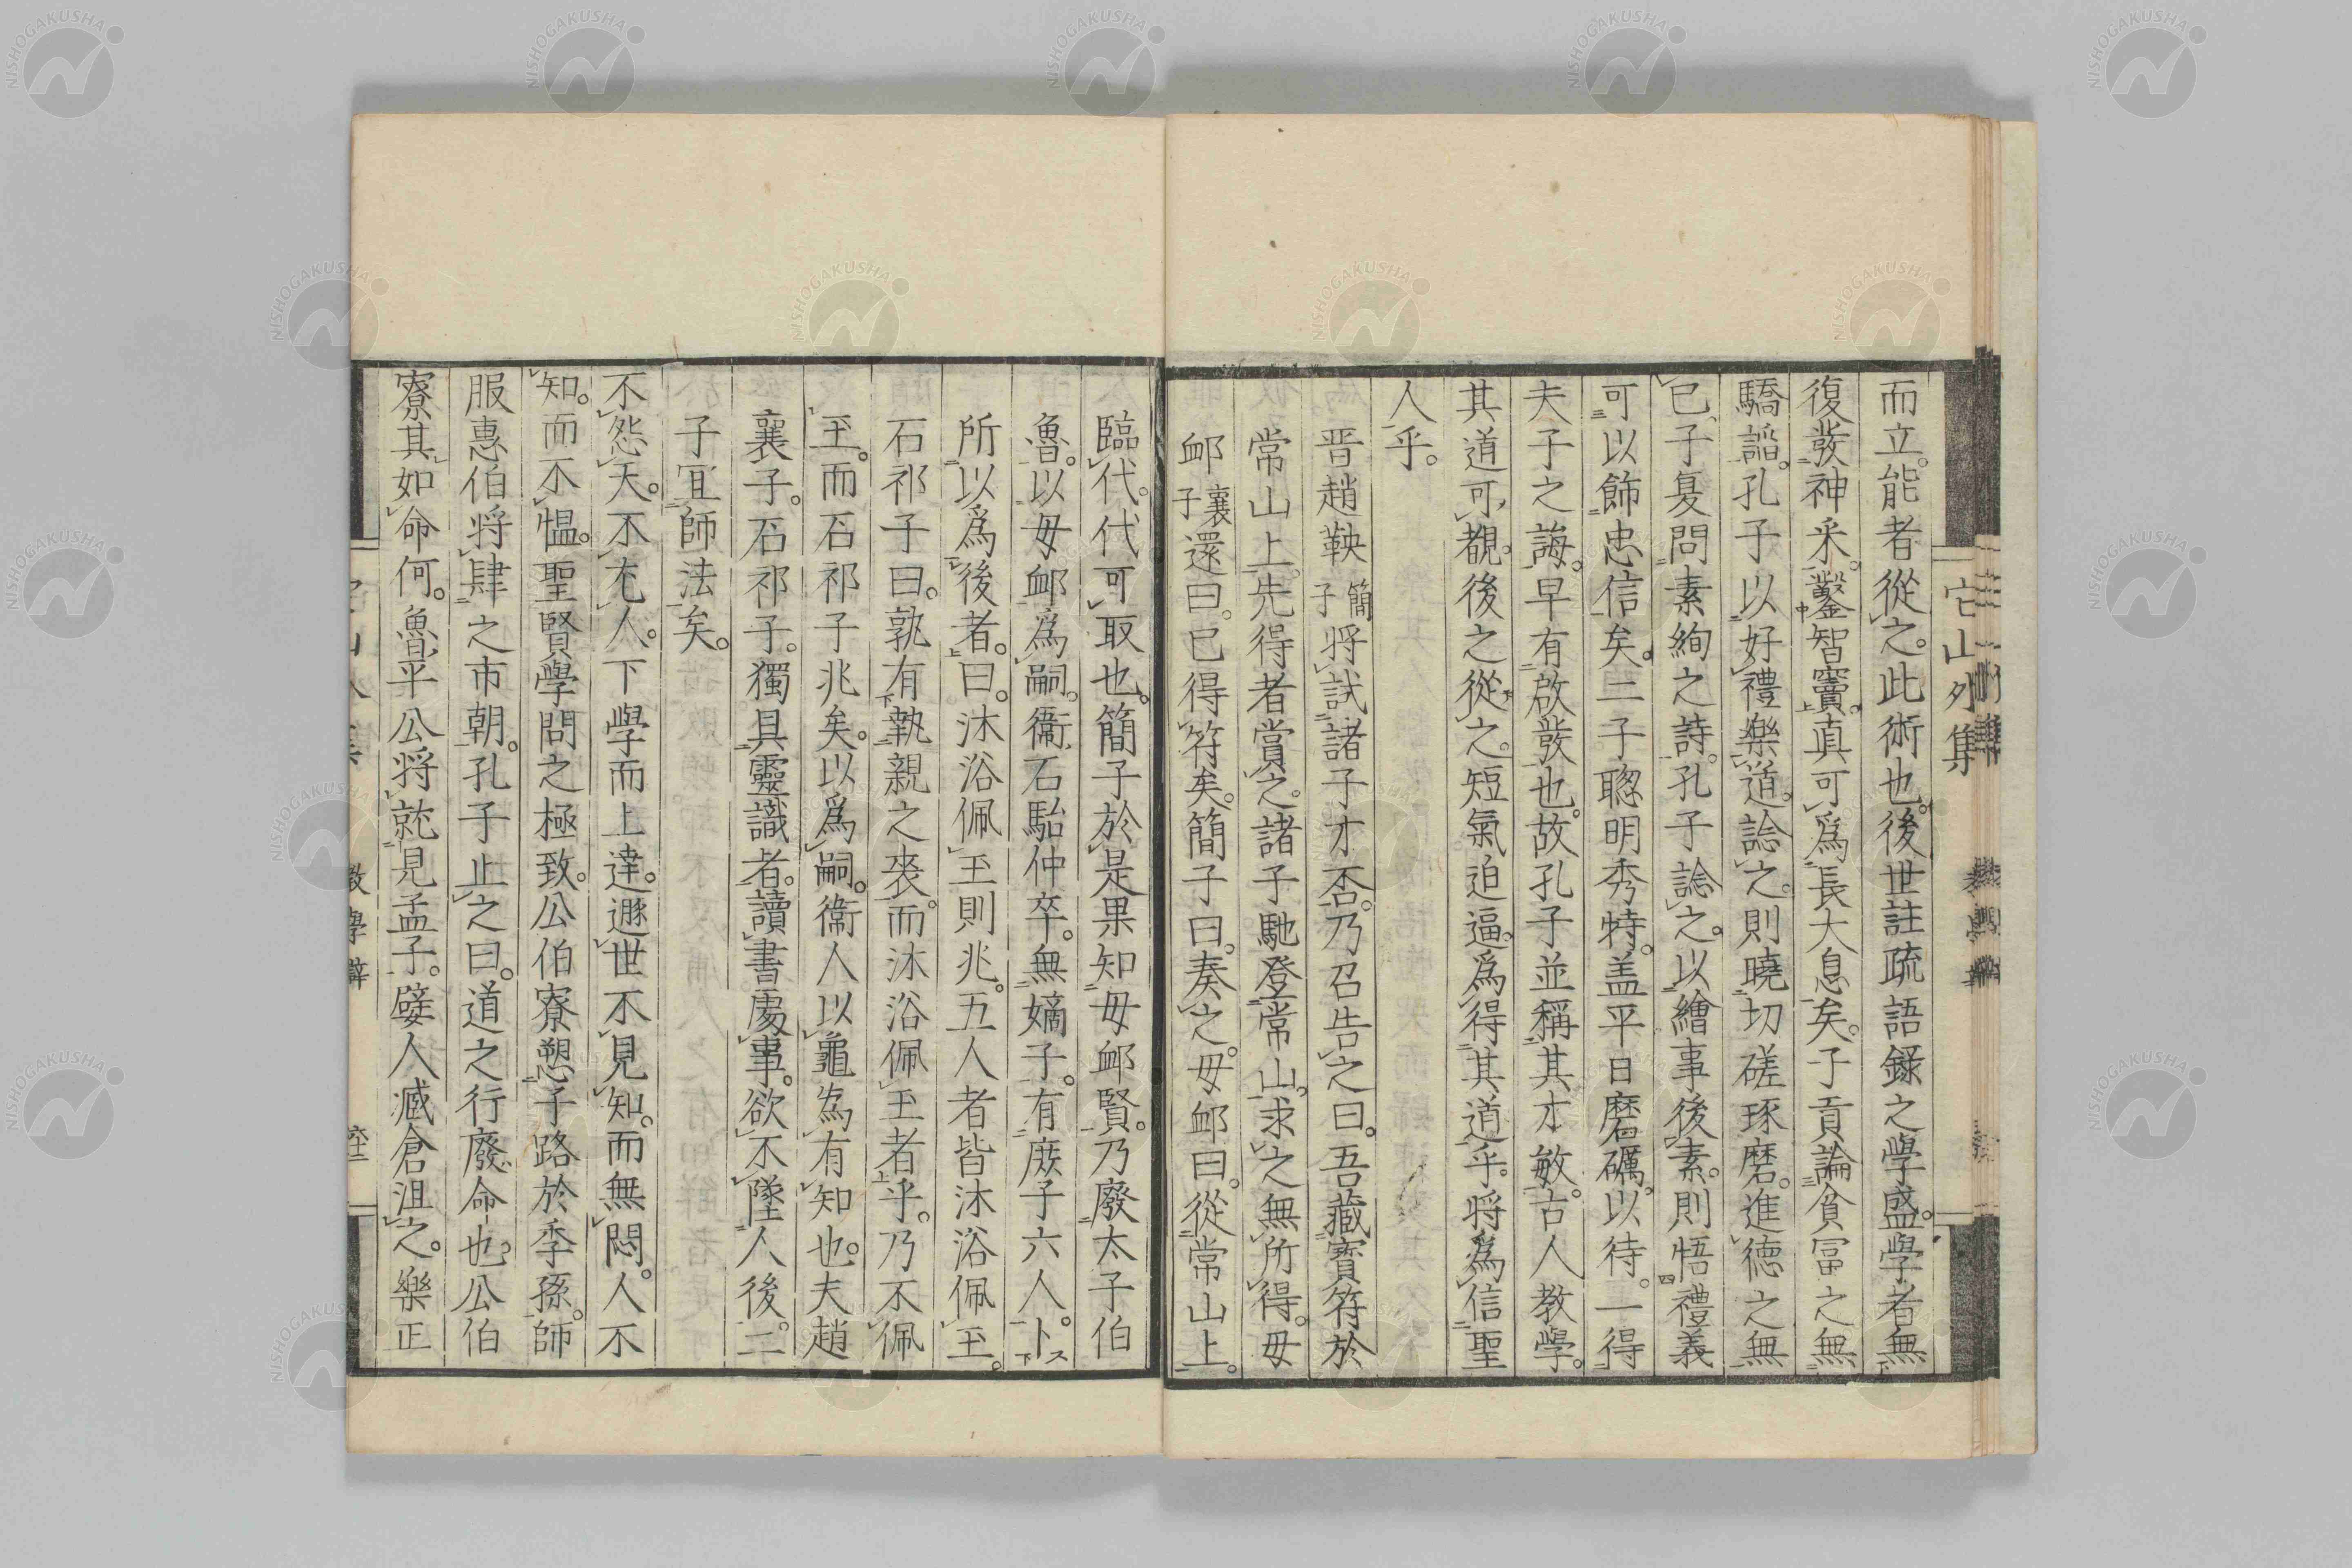 它山外集
而立。能者從之。此術也。後世註疏語錄之學盛。學者無
復發神采。鑿智竇。真可爲長大息矣。子貢論貧冨之無
驕諂。孔子以好禮樂道。諗之。則曉切磋琢磨。進德之無
已。子夏問素絢之詩。孔子諗之。以繪事後素。則悟禮義
可以飾忠信矣。二子聰明秀特。盖平日磨礪。以待。一得
夫子之誨。早有啟發也。故孔子並稱其才敏。古人教學。
其道可覩。後之從之。短氣迫逼。爲得其道乎。將爲信聖
人乎。
晋趙鞅簡子將試諸子才否。乃召告之曰。吾藏寳符於
常山上。先得者賞之。諸子馳登常山。求之無所得。毋
卹襄子還曰。已得符矣。簡子曰。奏之。毋卹曰。從常山上。
臨代。代可取也。簡子於是果知毋卹賢。乃廢太子伯
魯。以毋卹爲嗣。衞石駘仲卒。無嫡子。有庶子六人。卜
所以爲後者。曰。沐浴佩玉則兆。五人者皆沐浴佩玉。
石祁子曰。孰有執親之喪。而沐浴佩玉者乎。乃不佩
玉。而石祁子兆矣。以爲嗣。衞人以龜為有知也。夫趙
襄子。石祁子。獨具靈識者。讀書處事。欲不墜人後。二
子冝師法矣。
不怨天。不尤人。下學而上達。遯世不見知。而無悶。人不
知。而不愠。聖賢學問之極致。公伯寮愬子路於季孫。師
服惠伯将肆之市朝。孔子止之曰。道之行廢命也。公伯
寮其如命何。魯平公將就見孟子。嬖人臧倉沮之。樂正